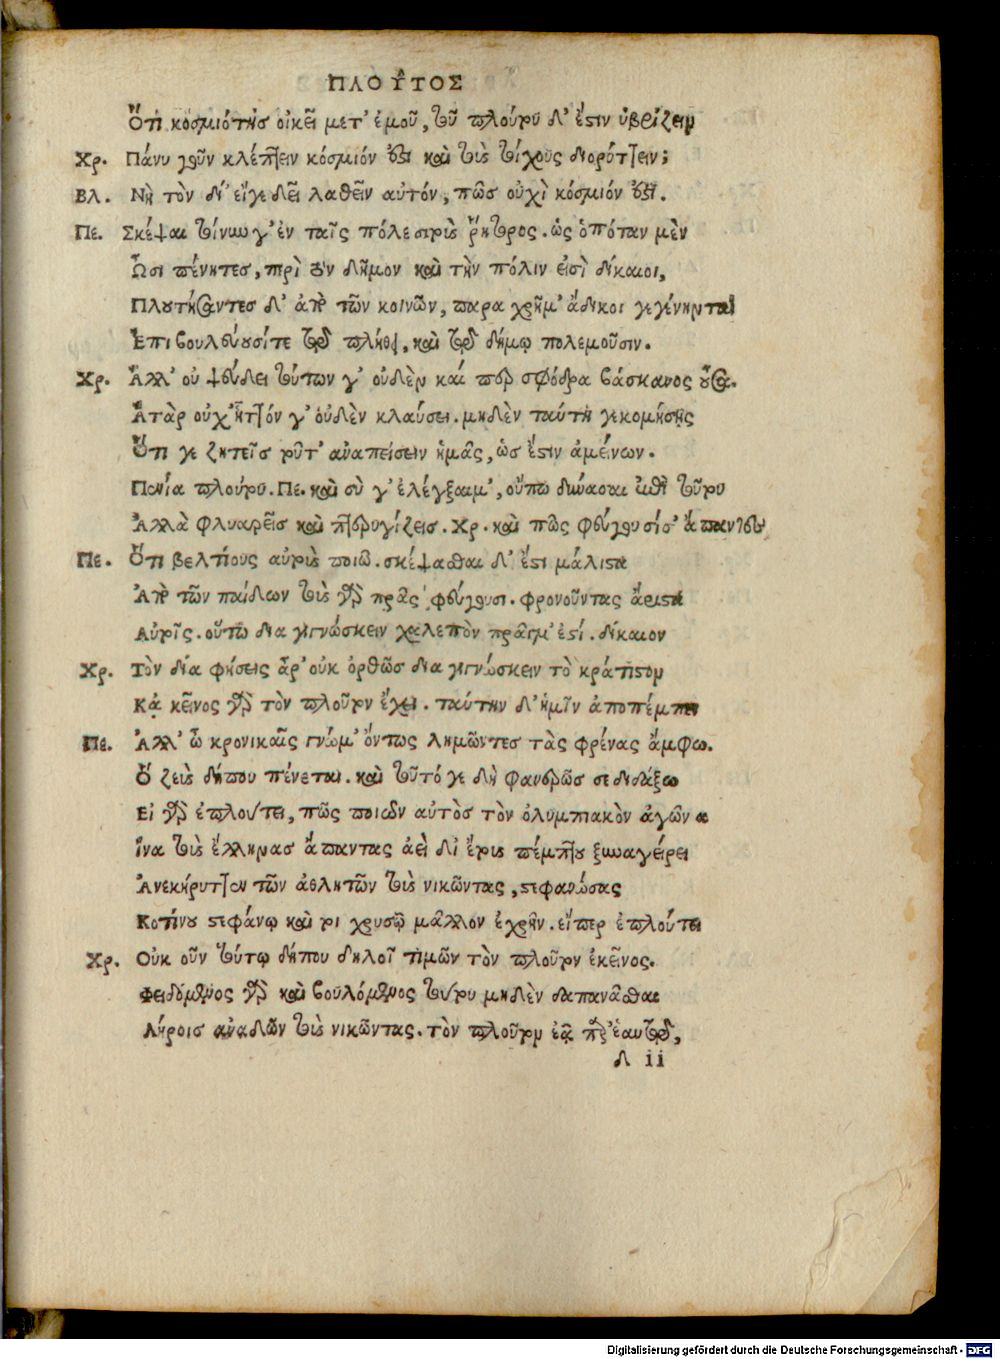 ΠΛΟΥ͂ΤΟΣ
Ὅτι κοσμιότης οἰκεῖ μετ' ἐμοῦ, τοῦ πλούτου δ' ἐστὶν ὑβρίζειν
Χρ. Πάνυ γοῦν κλέπτειν κόσμιόν ἐστι καὶ τοὺς τοίχους διορύττειν;
Βλ. Νὴ τὸν δί' εἴγε δεῖ λαθεῖν αὐτόν, πῶς οὐχὶ κόσμιόν ἐστι.
Πε. Σκέψαι τοίνυν γ' ἐν ταῖς πόλεσι τοὺς ῥήτορος. ὡς ὁπόταν μὲν
Ὦσι πένητες, περὶ τὸν δῆμον καὶ τὴν πόλιν εἰσὶ δίκαιοι,
Πλουτήσαντες δ' ἀπὸ τῶν κοινῶν, παρα χρῆμ' ἄδικοι γεγένηνται
Ἐπιβουλεύουσί τε τῷ πλήθει, καὶ τῷ δήμῳ πολεμοῦσιν.
Χρ. Ἀλλ' οὐ ψεύδει τούτων γ' οὐδὲν καί περ σφόδρα βάσκανος οὖσα.
Ἀτὰρ οὐχ' ἧττόν γ' οὐδὲν κλαύσει. μηδὲν ταύτη γε κομήσης
Ὅτι γε ζητεῖς τοῦτ' αναπείσειν ἡμᾶς, ὡς ἔστιν ἀμείνων.
Πενία πλούτου. Πε. καὶ σὺ γ' ἐλέγξαι μ', οὔπω δύνασαι περὶ τούτου
Ἀλλὰ φλυαρεῖς καὶ πτερυγίζεις. Χρ. καὶ πῶς φεύγουσί σ' ἅπαντες
Πε. Ὅτι βελτίους αὐτοὺς ποιῶ. σκέψασθαι δ' ἔστι μάλιστα
Ἀπὸ τῶν παίδων τοὺς γὰρ πατέρας φεύγουσι. φρονοῦντας ἄριστα
Αὐτοῖς. οὕτω δια γιγνώσκειν χαλεπὸν πρᾶγμ' ἐστί. δίκαιον
Χρ. Τὸν δία φήσεις ἆρ' οὐκ ὀρθῶς δια γιγνώσκειν τὸ κράτιστον
Κἀ κεῖνος γὰρ τὸν πλοῦτον ἔχει. ταύτην δ' ἡμῖν ἀποπέμπει
Πε. Ἀλλ' ὦ κρονικαῖς γνώμ' ὄντως λημῶντες τὰς φρένας ἄμφω.
Ὁ ζεὺς δήπου πένεται. καὶ τοῦτό γε δὴ φανερῶς σε διδάξω
Εἰ γὰρ ἐπλούτει, πῶς ποιῶν αὐτὸς τὸν ὀλυμπιακὸν ἀγῶνα
Ἵνα τοὺς ἕλληνας ἅπαντας ἀεὶ δι' ἔτους πέμπτου ξυναγείρει
Ἀνεκήρυττεν τῶν ἀθλητῶν τοὺς νικῶντας, στεφανώσας
Κοτίνου στεφάνῳ καὶ τοι χρυσῷ μᾶλλον ἐχρῆν. εἴπερ ἐπλούτει
Χρ. Οὐκ οῦν τούτῳ δήπου δηλοῖ τιμῶν τὸν πλοῦτον ἐκεῖνος.
Φειδόμενος γὰρ καὶ βουλόμενος τούτου μηδὲν δαπανᾶσθαι
Λήροις ἀναδῶν τοὺς νικῶντας. τὸν πλοῦτον ἐᾷ παρ' ἑαυτῷ,
δ ii
Digitalisierung gefördert durch die Deutsche Forschungsgemeinschaft - DFG